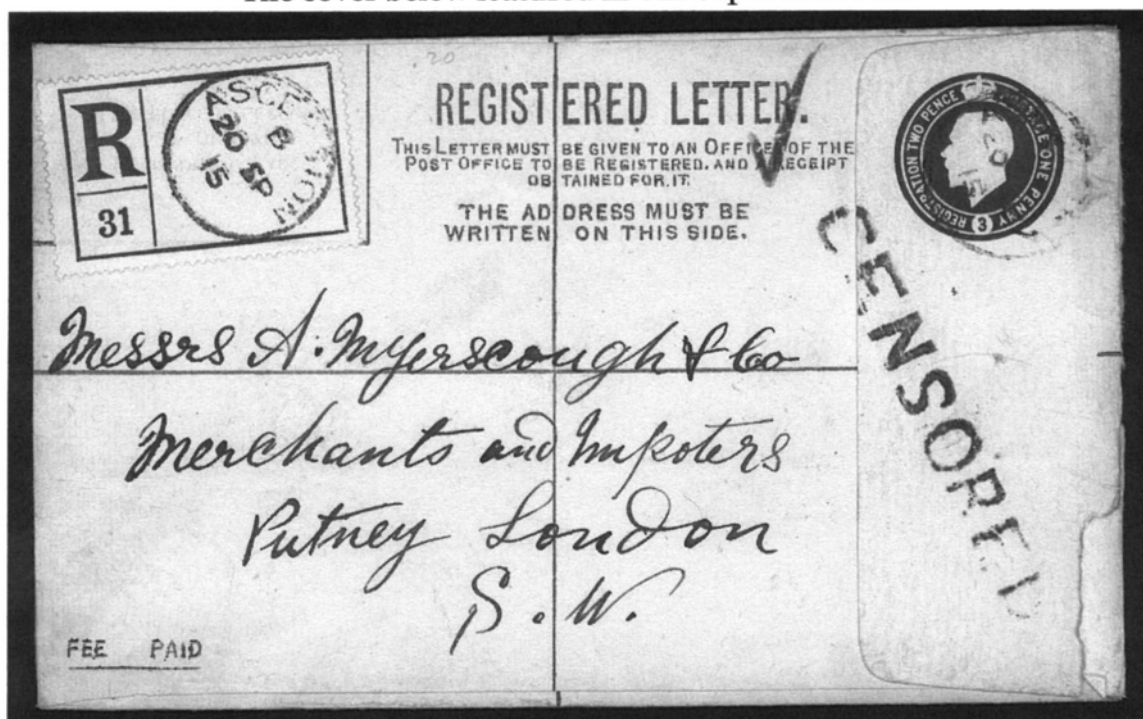 R
31
ASCENSION
B
20 SP
15
.20
REGISTERED LETTER.
THIS LETTER MUST BE GIVEN TO AN OFFICER OF THE
POST OFFICE TO BE REGISTERED. AND A RECEIPT
OBTAINED FOR IT.
THE ADDRESS MUST BE
WRITTEN ON THIS SIDE.
REGISTRATION TWO PENCE POSTAGE ONE PENNY
3
20
15
CENSORED
Messrs A. Myerscough & Co
Merchants and Impoters
Putney London
S.W.
FEE PAID